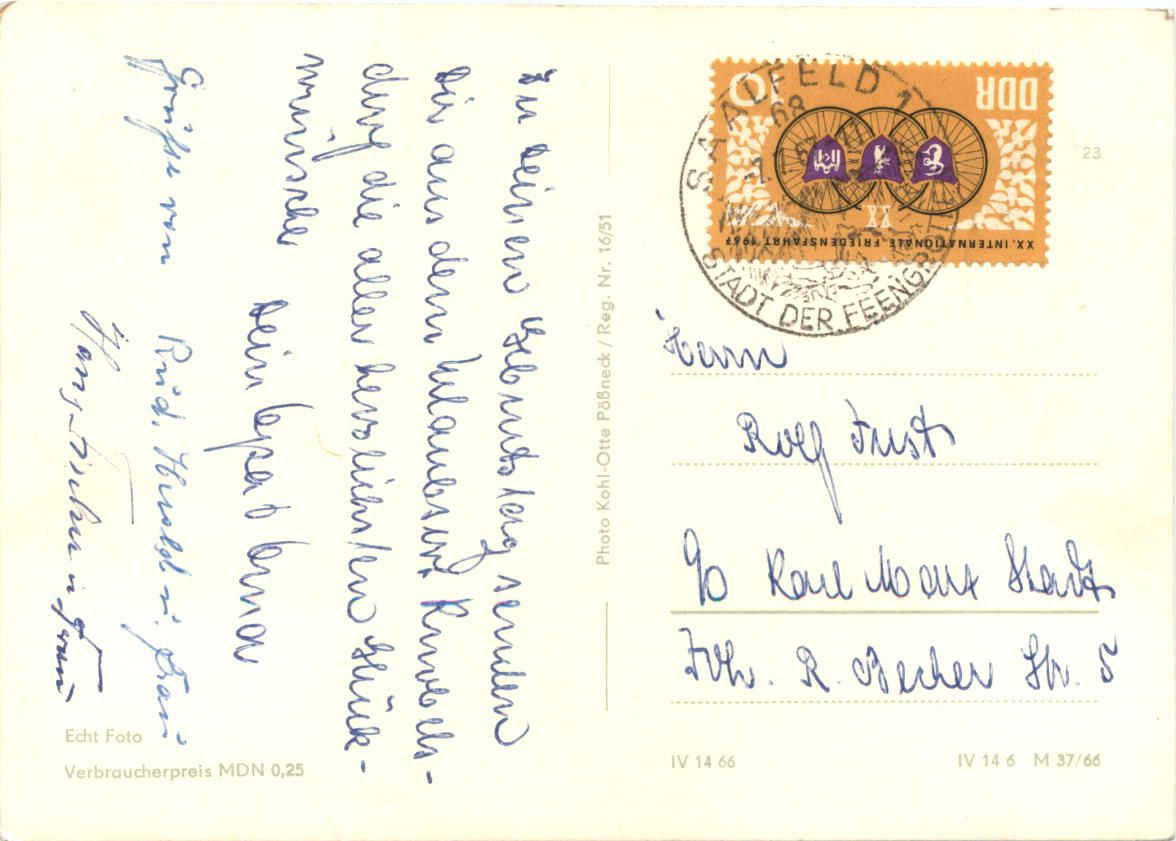 Zu deinem Geburtstag senden
Dir aus dem Urlaubsort Knobels-
dorf die aller herzlichsten Glück-
wünsche
Dein Opa + Oma
Grüße von Rud. Herold u. Frau
Hans Fischer u. Frau
Echt Foto
Verbraucherpreis MDN 0,25
Photo Kohl-Otte Pößneck / Reg. Nr. 16/51
DDR
10
XX
XX. INTERNATIONALE FRIEDENSFAHRT 1967
SAALFELD 1
68
STADT DER FEENGROTTEN
23
Herrn
Rolf Fust
90 Karl Marx Stadt
Joh. R. Becher Str. 5
IV 14 66
IV 14 6 M 37/66